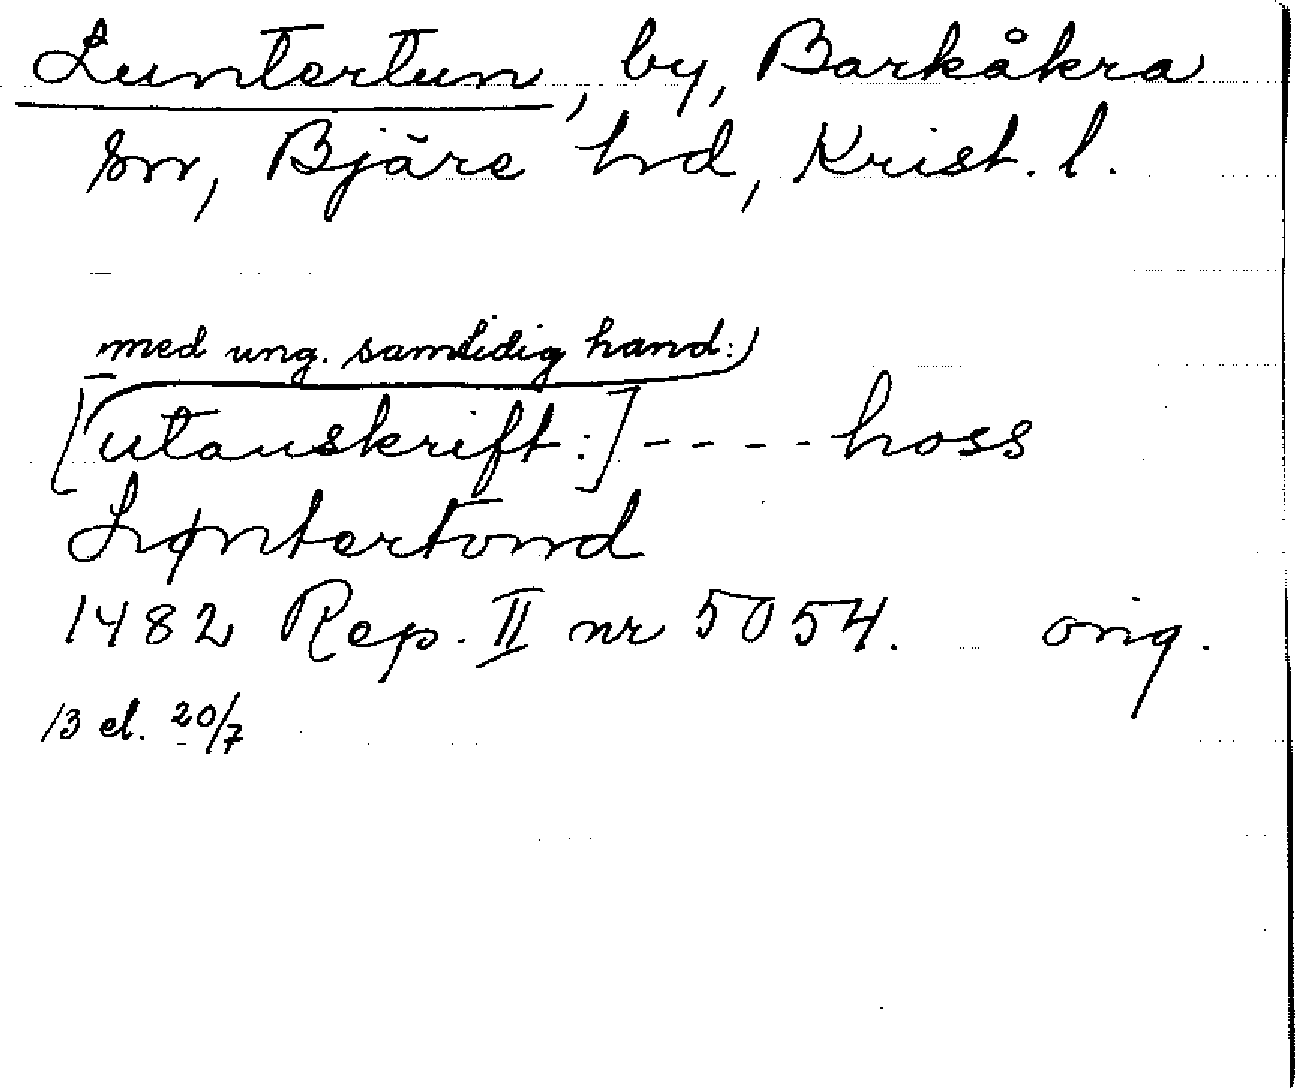 Luntertun, by, Barkåkra
sn, Bjäre hd, Krist. l.
med ung. samtidig hand:
[utanskrift:] ---- hoss
Løntertond
1482 Rep. II nr 5054. orig.
13 el. 20/7